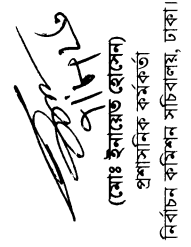 (মোঃ ইনায়েত হোসেন)
প্রশাসনিক কর্মকর্তা
নির্বাচন কমিশন সচিবালয়, ঢাকা।